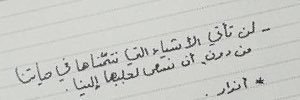 - لن تأتي الأشياء التي نتمناها في حياتنا
من دون أن نسعى لجلبها إلينا.
* أنذار.